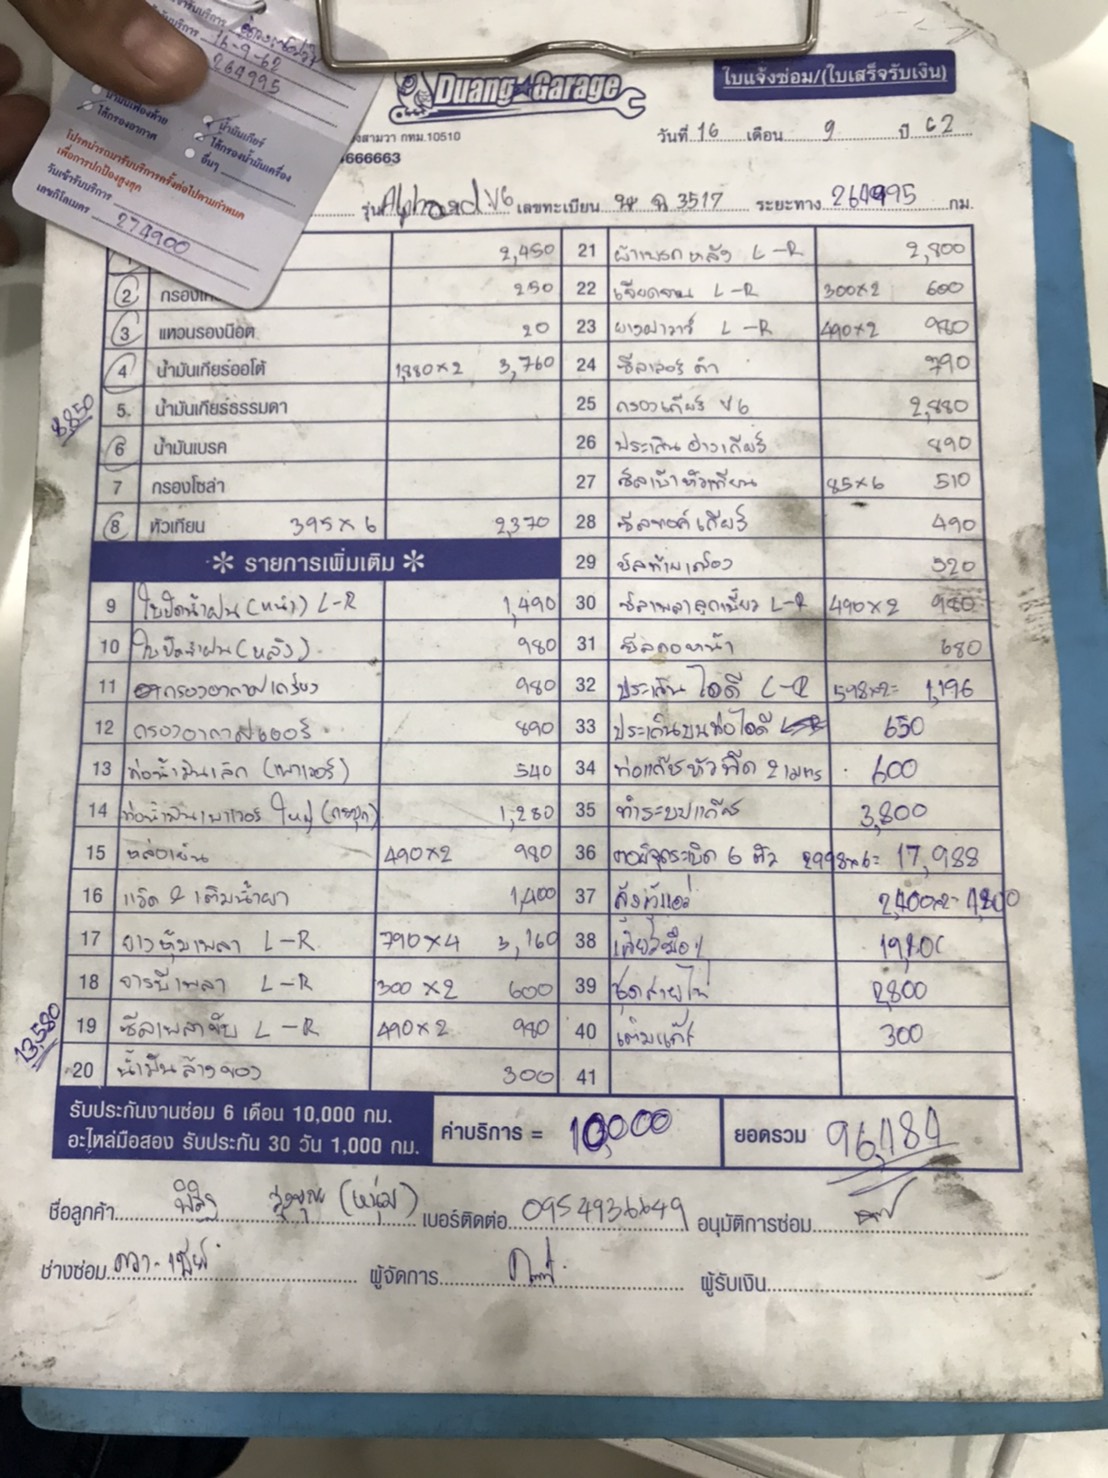 16-9-62
264995
น้ำมันเฟืองท้าย
น้ำมันเกียร์
ไส้กรองอากาศ
ไส้กรองน้ำมันเครื่อง
อื่นๆ
โปรดนำรถมารับบริการครั้งต่อไปตามกำหนด
เพื่อการปกป้องสูงสุด
วันเข้ารับบริการ
เลขกิโลเมตร 274900
Duang Garage
ใบแจ้งซ่อม/(ใบเสร็จรับเงิน)
สามวา กทม.10510
666663
วันที่ 16 เดือน 9 ปี 62
รุ่น Alphard V6 เลขทะเบียน 3517 ระยะทาง 264995 กม.
2,450
2 250
3 แหวนรองน๊อต 20
4 น้ำมันเกียร์ออโต้ 1,880×2 3,760
8,850
5. น้ำมันเกียร์ธรรมดา
6 น้ำมันเบรค
7 กรองโซล่า
8 หัวเทียน 395×6 2,370
* รายการเพิ่มเติม *
9 ใบปัดน้ำฝน (หน้า) L-R 1,490
10 ใบปัดน้ำฝน (หลัง) 980
11 กรองอากาศเครื่อง 980
12 กรองอากาศแอร์ 890
13 ท่อน้ำมันเล็ก (เพาเวอร์) 540
14 ท่อน้ำมันเพาเวอร์ ใหญ่ 1,280
15 หล่อเย็น 490×2 980
16 แว๊ค & เติมน้ำยา 1,400
17 ยางหุ้มเพลา L-R 790×4 3,160
18 จารบีเพลา L-R 300×2 600
19 ซีลเพลาขับ L-R 490×2 980
13,580
20 น้ำมันล้างของ 300
21 ผ้าเบรกหลัง L-R 2,800
22 เจียดจาน L-R 300×2 600
23 L-R 490×2 980
24 790
25 กรองเกียร์ V6 2,880
26 ประเก็นอ่างเกียร์ 890
27 ซีลเบ้าหัวเทียน 85×6 510
28 เกียร์ 490
29 ซีลท้ายเครื่อง 520
30 ซีลเพลาลูกเบี้ยว L-R 490×2 980
31 ซีลคอหน้า 680
32 ประเก็นไอดี L-R 598×2= 1,196
33 ประเก็นบนท่อไอดี 650
34 ท่อแก๊สหัวฉีด 2 เมตร 600
35 ทำระบบแก๊ส 3,800
36 คอยล์จุดระเบิด 6 ตัว 2998×6= 17,988
37 2,400×2= 4,800
38
39 ชุดสายไฟ 2,800
40 เติมแก๊ส 300
41
รับประกันงานซ่อม 6 เดือน 10,000 กม.
อะไหล่มือสอง รับประกัน 30 วัน 1,000 กม.
ค่าบริการ = 10,000
ยอดรวม 96,184
ชื่อลูกค้า (หนุ่ม) เบอร์ติดต่อ 0954936649 อนุมัติการซ่อม
ช่างซ่อม ผู้จัดการ ผู้รับเงิน